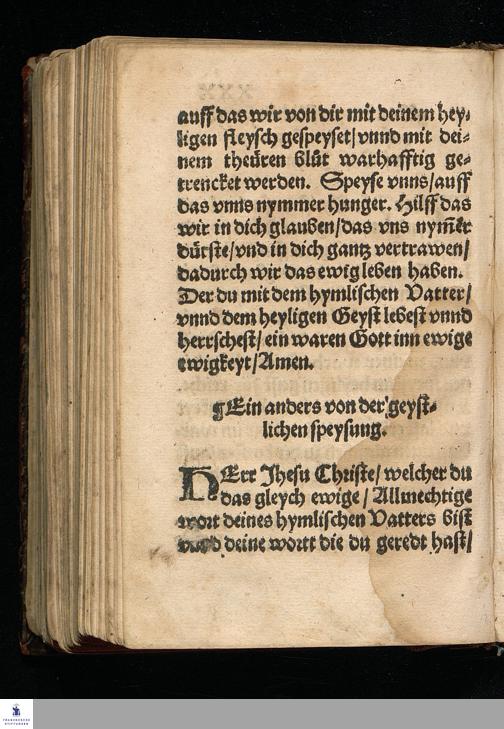 auff das wir von dir mit deinem hey⸗
ligen fleysch gespeyset/vnnd mit dei⸗
nem theüren blůt warhafftig ge⸗
trencket werden. Speyse vnns/auff
das vnns nymmer hunger. Hilff das
wir in dich glauben/das vns nym̃er
dürste/vnd in dich gantz vertrawen/
dadurch wir das ewig leben haben.
Der du mit dem hymlischen Vatter/
vnnd dem heyligen Geyst lebest vnnd
herrschest/ein waren Gott inn ewige
ewigkeyt/Amen.
¶Ein anders von der geyst⸗
lichen speysung.
HErr Jhesu Christe/welcher du
das gleych ewige/Allmechtige
wort deines hymlischen Vatters bist
vnnd deine wortt die du geredt hast/
FRANCKESCHE
STIFTUNGEN